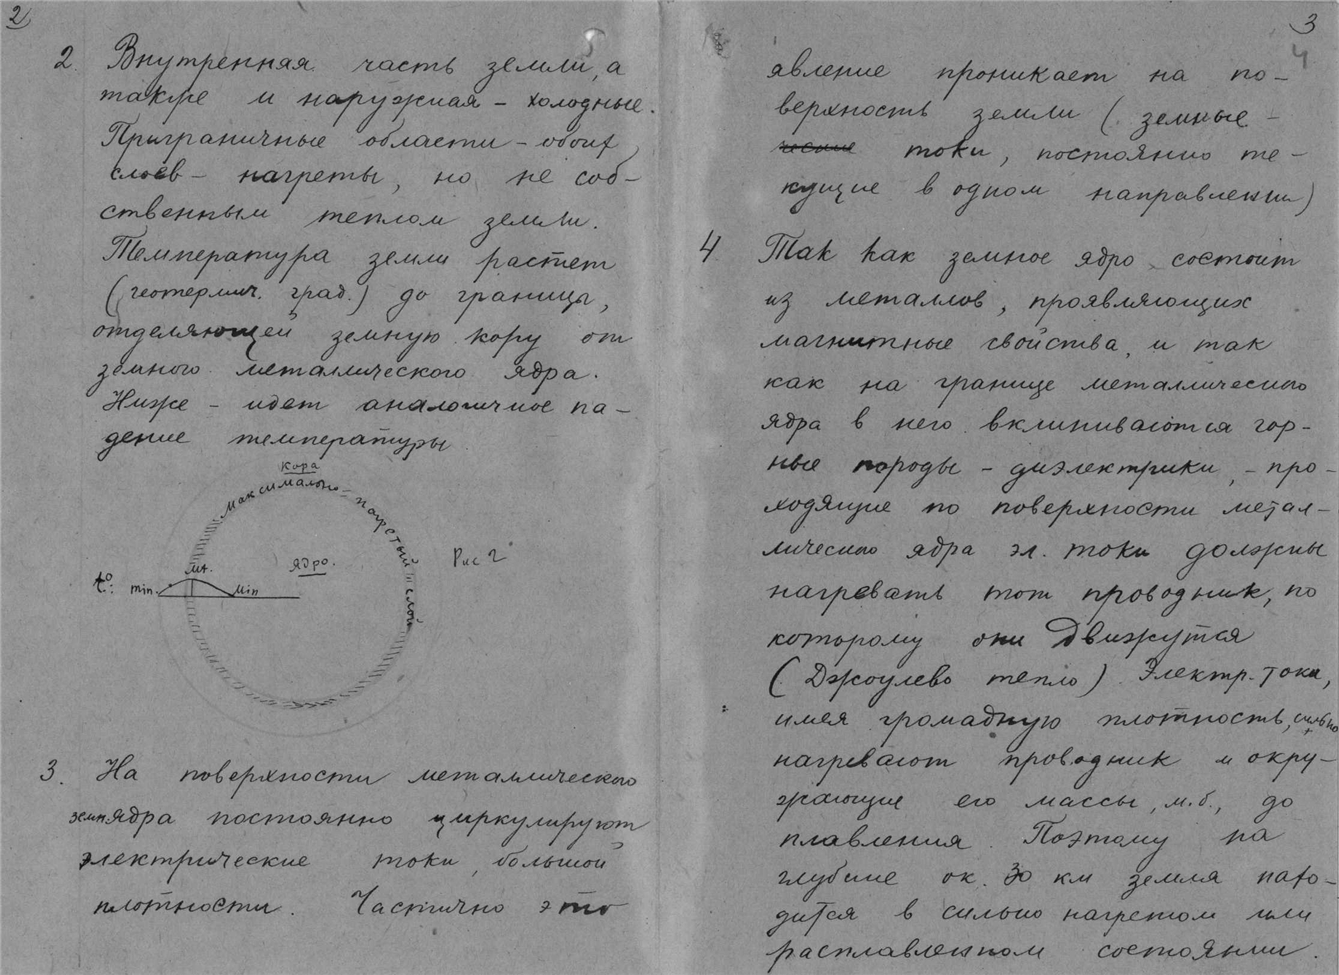 2
2 Внутренная часть земли, а
также и наружная - холодные.
Приграничные области - обоих
слоев - нагреты, но не соб-
ственным теплом земли.
Температура земли растет
(геотермич. град.) до границы,
отделяющей земную кору от
земного металлического ядра.
Ниже - идет аналогичное па-
дение температуры
кора
максимально - нагретый слой
ядро.
Mt.
t°: min. min
Рис 2
3. На поверхности металлического
земн ядра постоянно циркулируют
электрические токи, большой
плотности. Частично это
3
4
явление проникает на по-
верхность земли (земные -
токи, постоянно те-
кущие в одном направлении)
4 Так как земное ядро состоит
из металлов, проявляющих
магнитные свойства, и так
как на границе металлического
ядра в него вклиниваются гор-
ные породы - диэлектрики, - про-
ходящие по поверхности метал-
лического ядра эл. токи должны
нагревать тот проводник, по
которому они движутся
(Джоулево тепло) Электр. токи,
имея громадную плотность, сильно
нагревают проводник и окру-
жающие его массы, м.б., до
плавления. Поэтому на
глубине ок. 30 км земля нахо-
дится в сильно нагретом или
расплавленном состоянии.